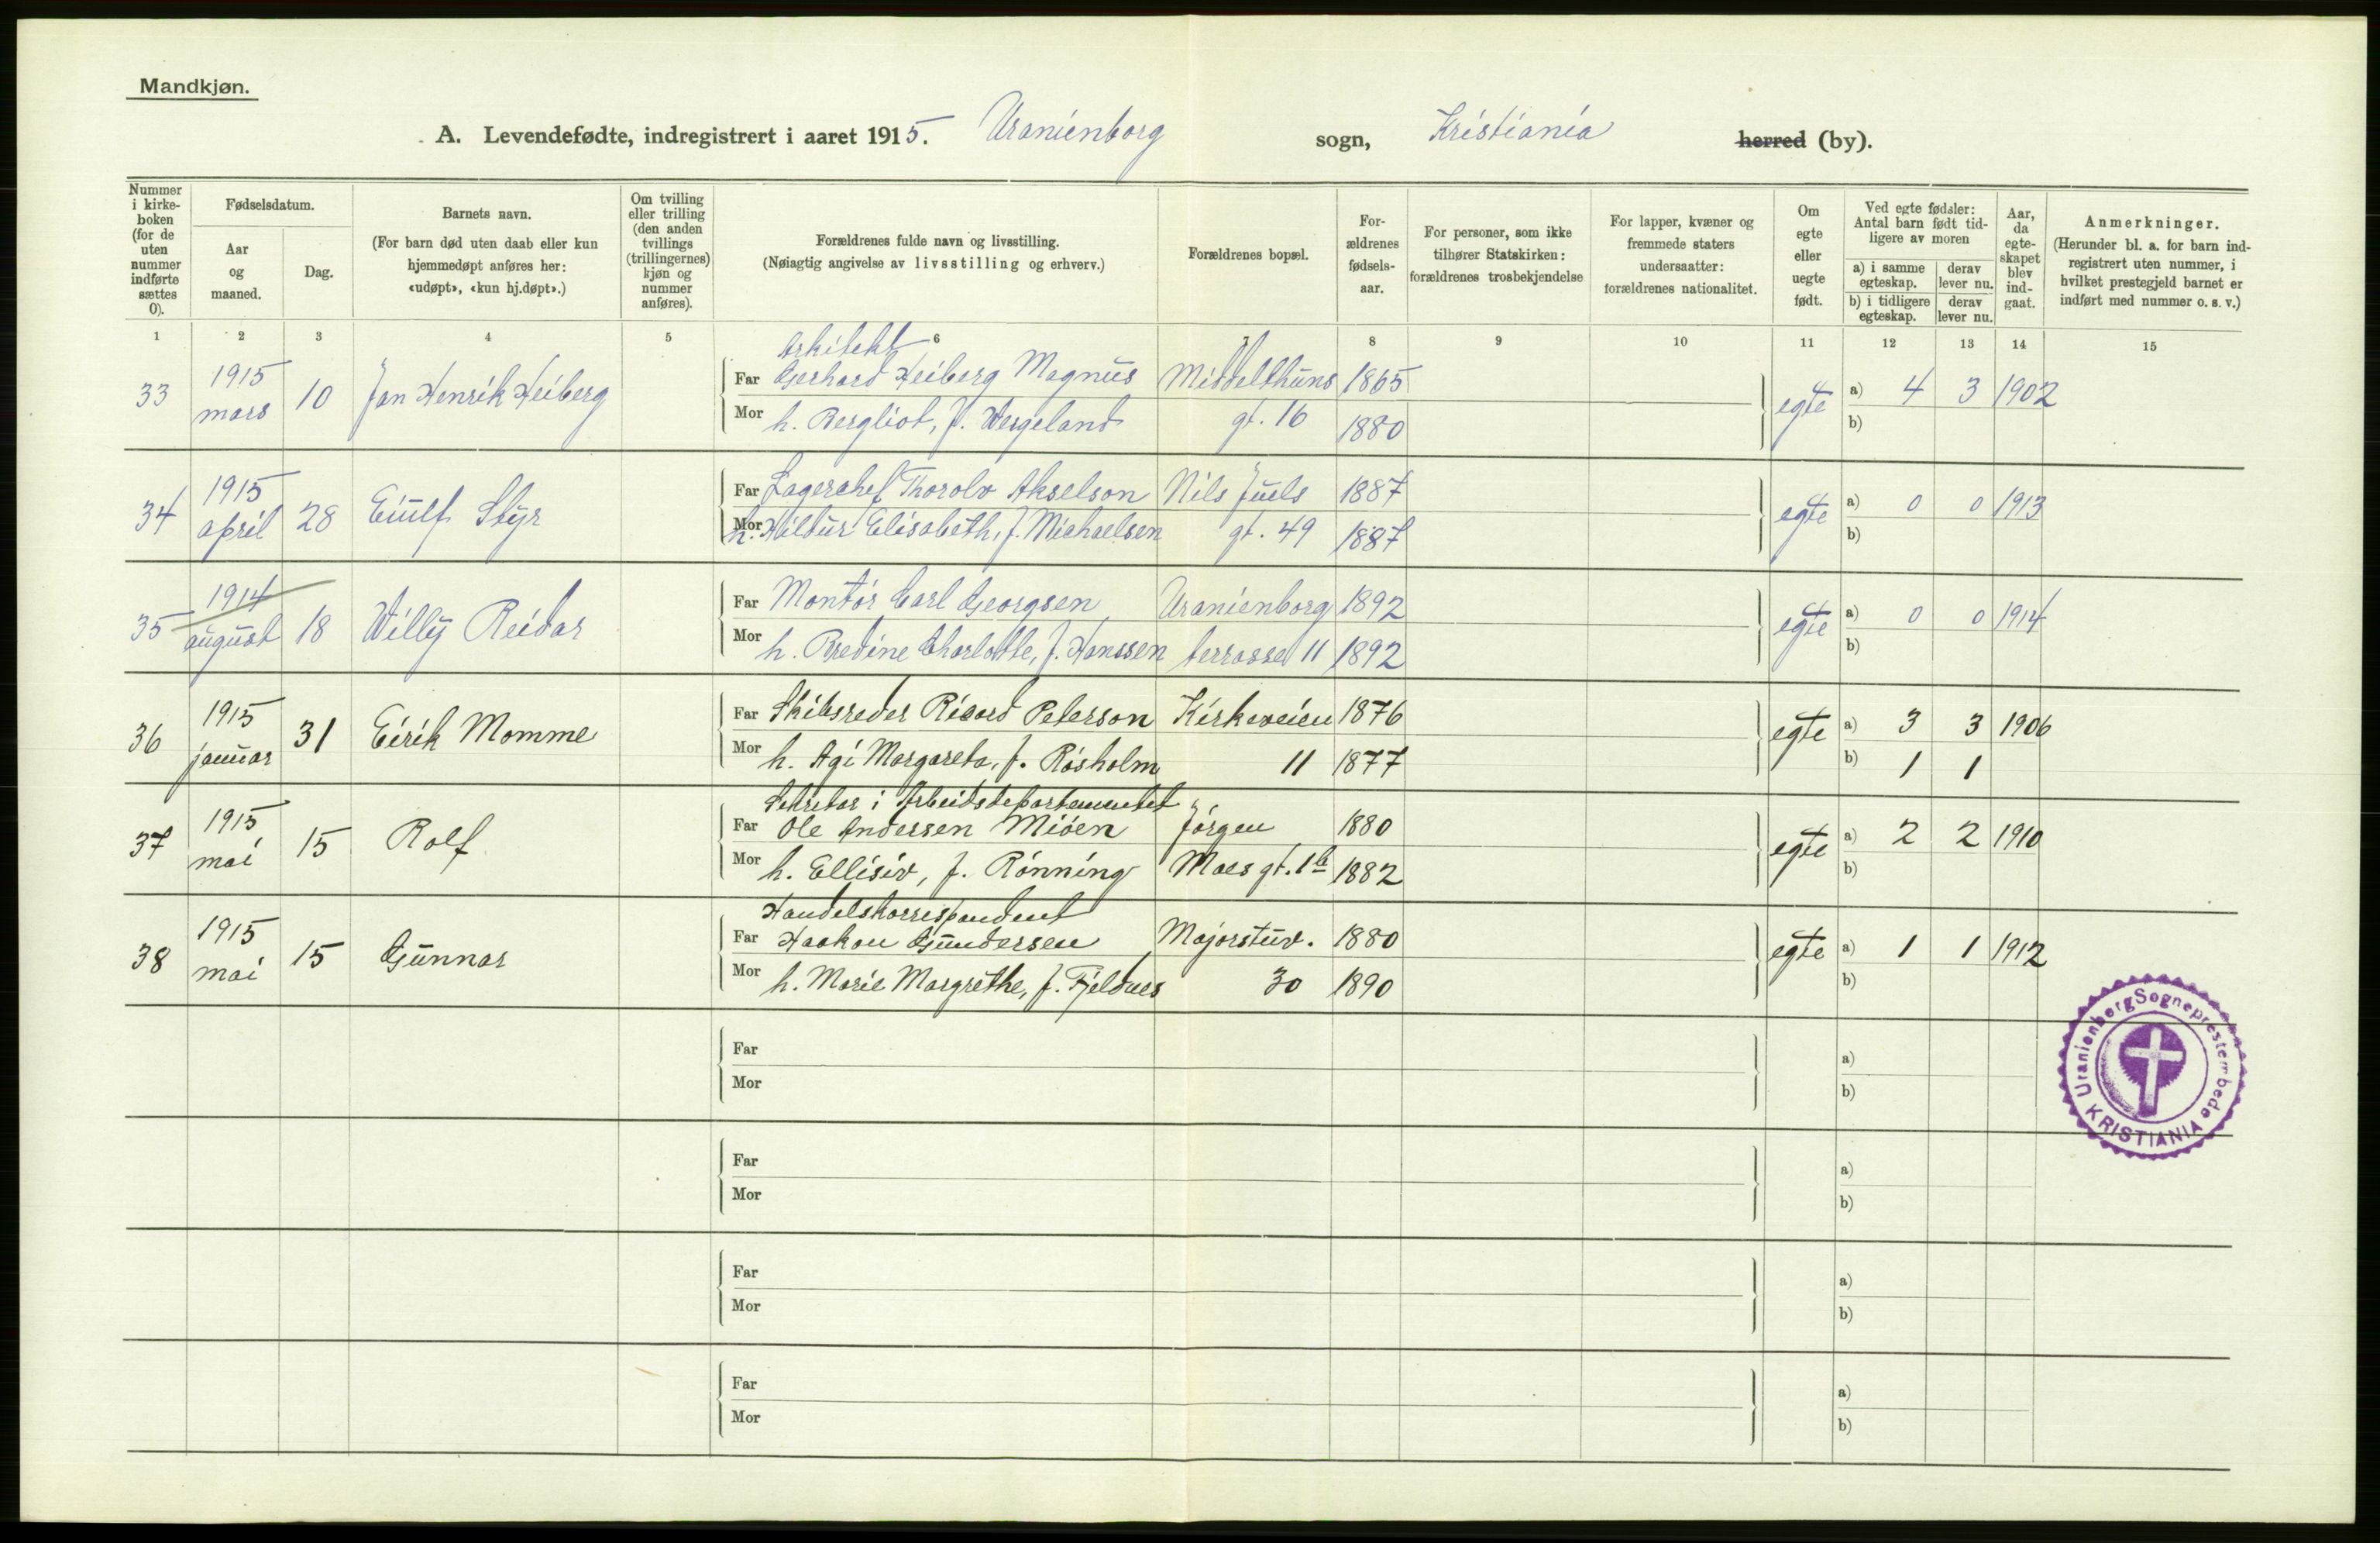 Mandkjøn.
A. Levendefødte, indregistrert i aaret 1915. Uranienborg sogn, Kristiania herred (by).
Nummer i kirke-boken (for de uten nummer indførte sættes 0).
Fødselsdatum.
Aar og maaned.
Dag.
Barnets navn.
(For barn død uten daab eller kun hjemmedøpt anføres her: «udøpt», «kun hj.døpt».)
Om tvilling eller trilling (den anden tvillings (trillingernes) kjøn og nummer anføres).
Forældrenes fulde navn og livsstilling.
(Nøiagtig angivelse av livsstilling og erhverv.)
Forældrenes bopæl.
For-ældrenes fødsels-aar.
For personer, som ikke tilhører Statskirken: forældrenes trosbekjendelse
For lapper, kvæner og fremmede staters undersaatter: forældrenes nationalitet.
Om egte eller uegte født.
Ved egte fødsler: Antal barn født tid-ligere av moren
a) i samme egteskap.
derav lever nu.
b) i tidligere egteskap.
derav lever nu.
Aar, da egte-skapet blev ind-gaat.
Anmerkninger.
(Herunder bl. a. for barn ind-registrert uten nummer, i hvilket prestegjeld barnet er indført med nummer o. s. v.)
1 2 3 4 5 6 7 8 9 10 11 12 13 14 15
Arkitekt
33 1915 mars 10 Jan Henrik Heiberg Far Gerhard Heiberg Magnus Middelthuns 1865 egte a) 4 3 1902
Mor h. Bergliot, f. Wergeland gt. 16 1880 b)
34 1915 april 28 Eiulf Styr Far Lagerchef Thorolv Akselson Nils Juels 1887 egte a) 0 0 1913
Mor h. Hildur Elisabeth, f. Michaelsen gt. 49 1887 b)
35 1914 august 18 Willy Reidar Far Montør Carl Georgsen Uranienborg 1892 egte a) 0 0 1914
Mor h. Bredine Charlotte, f. Hanssen terrasse 11 1892 b)
36 1915 januar 31 Eirik Momme Far Skibsreder Ricard Peterson Kirkeveien 1876 egte a) 3 3 1906
Mor h. Agi Margareta, f. Rosholm 11 1877 b) 1 1
Sekretær i Arbeidsdepartementet
37 1915 mai 15 Rolf Far Ole Andersen Miøen Jørgen 1880 egte a) 2 2 1910
Mor h. Ellisiv, f. Rønning Moes gt. 1b 1882 b)
Handelskorrespondent
38 1915 mai 15 Gunnar Far Haakon Gundersen Majorstuv. 1880 egte a) 1 1 1912
Mor h. Marie Margrethe, f. Fjeldnes 30 1890 b)
Uranienborg Sogneprestembede KRISTIANIA
Far a)
Mor b)
Far a)
Mor b)
Far a)
Mor b)
Far a)
Mor b)